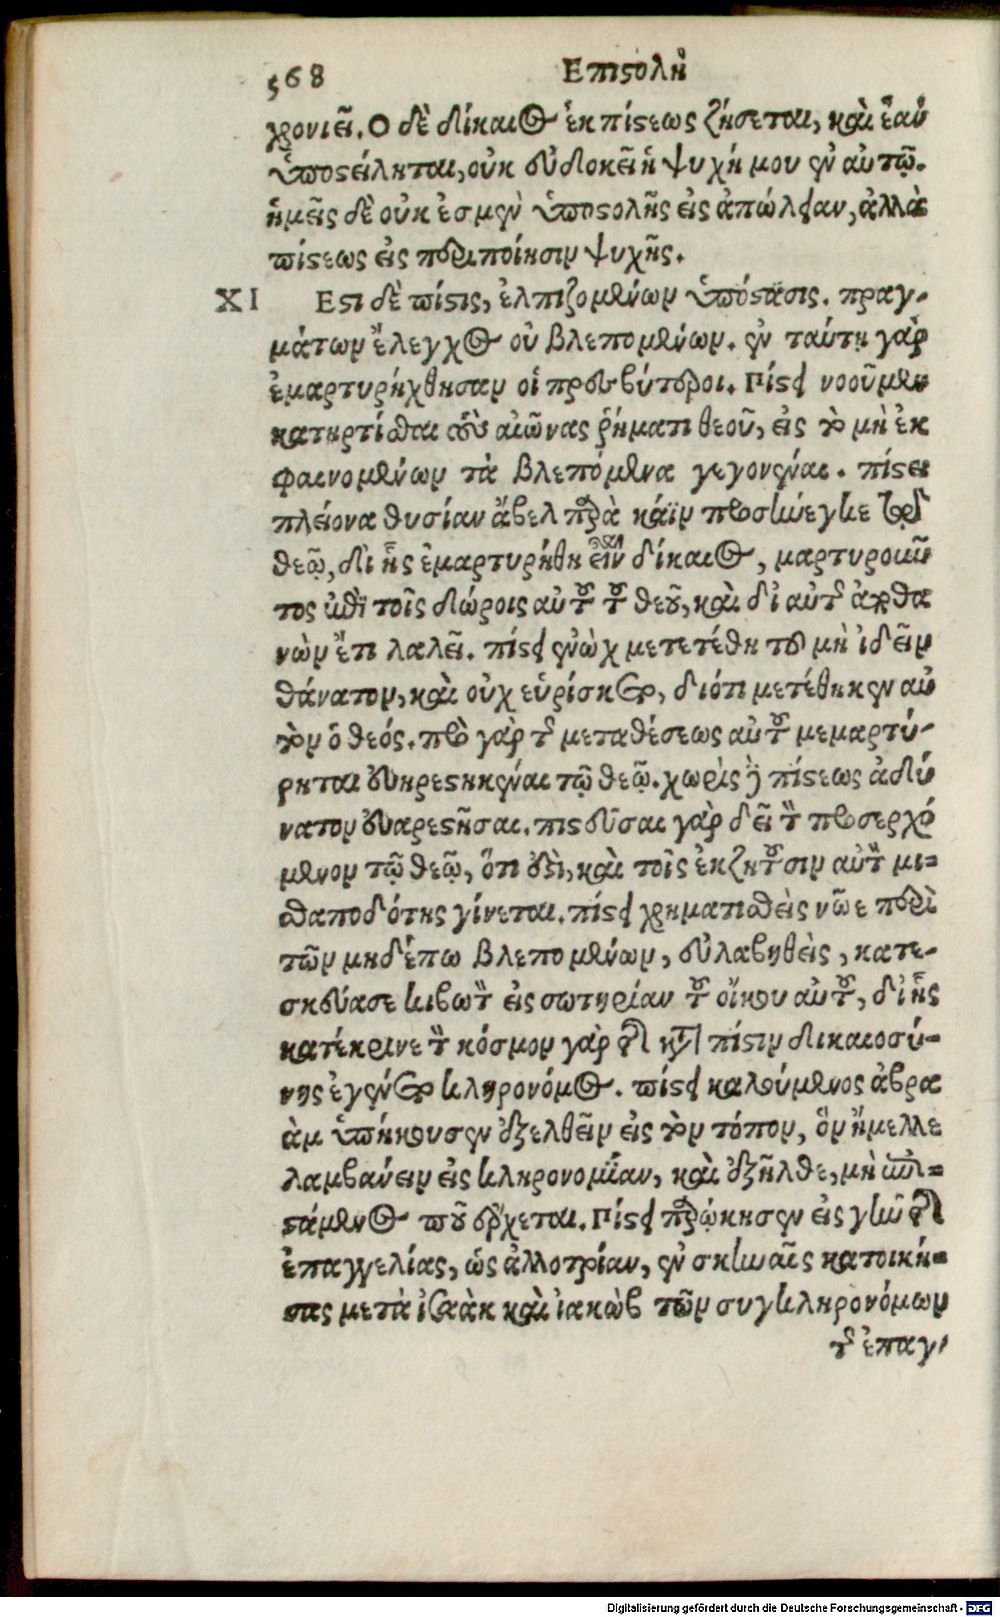 568 Επιϛολὴ
χρονιεῖ. Ο δὲ δίκαιος ἐκ πίϛεως ζήσεται, καὶ ἐὰν
ὑποϛείληται, οὐκ εὐδοκεῖ ἡ ψυχή μου ἐν αὐτῷ.
ἡμεῖς δὲ οὐκ ἐσμὲν ὑποϛολῆς εἰς ἀπώλειαν, ἀλλὰ
πίϛεως εἰς περιποίησιν ψυχῆς.
XI Εϛι δὲ πίϛις, ἐλπιζομένων ὑπόϛασις. πραγ-
μάτων ἔλεγχος οὐ βλεπομένων. ἐν ταύτῃ γὰρ
ἐμαρτυρήχθησαν οἱ πρεσβύτεροι. Πίϛει νοοῦμεν
κατηρτίσθαι τοὺς αἰῶνας ῥήματι θεοῦ, εἰς τὸ μὴ ἐκ
φαινομένων τὰ βλεπόμενα γεγονέναι. πίϛει
πλείονα θυσίαν ἄβελ παρὰ κάϊν προσήνεγκε τῷ
θεῷ, δι ἧς ἐμαρτυρήθη εἶναι δίκαιος, μαρτυροῦν
τος ἐπὶ τοῖς δώροις αὐτοῦ τοῦ θεοῦ, καὶ δι αὐτῆς ἀποθα
νὼν ἔτι λαλεῖ. πίϛει ἐνὼχ μετετέθη τοῦ μὴ ἰδεῖν
θάνατον, καὶ οὐχ εὑρίσκετο, διότι μετέθηκεν αὐ
τὸν ὁ θεός. πρὸ γὰρ τῆς μεταθέσεως αὐτοῦ μεμαρτύ-
ρηται εὐηρεϛηκέναι τῷ θεῷ. χωρὶς δὲ πίϛεως ἀδύ
νατον εὐαρεϛῆσαι. πιϛεῦσαι γὰρ δεῖ τὸν προσερχό
μενον τῷ θεῷ, ὅτι ἐϛὶ, καὶ τοῖς ἐκζητοῦσιν αὐτὸν μι=
σθαποδότης γίνεται. πίϛει χρηματισθεὶς νῶε περὶ
τῶν μηδέπω βλεπομένων, εὐλαβηθεὶς, κατε-
σκεύασε κιβωτὸν εἰς σωτηρίαν τοῦ οἴκου αὐτοῦ, δι ἧς
κατέκρινε τὸν κόσμον γὰρ τῆς κατὰ πίϛιν δικαιοσύ=
νης ἐγένετο κληρονόμος. πίϛει καλούμενος ἀβρα
ὰμ ὑπήκουσεν ἐξελθεῖν εἰς τὸν τόπον, ὃν ἤμελλε
λαμβάνειν εἰς κληρονομίαν, καὶ ἐξῆλθε, μὴ ἐπι=
ϛάμενος ποῦ ἔρχεται. Πίϛει παρῴκησεν εἰς γῆν τῆς
ἐπαγγελίας, ὡς ἀλλοτρίαν, ἐν σκηναῖς κατοική=
σας μετὰ ἰσαὰκ καὶ ἰακὼβ τῶν συγκληρονόμων
τῆς ἐπαγ-
Digitalisierung gefördert durch die Deutsche Forschungsgemeinschaft - DFG